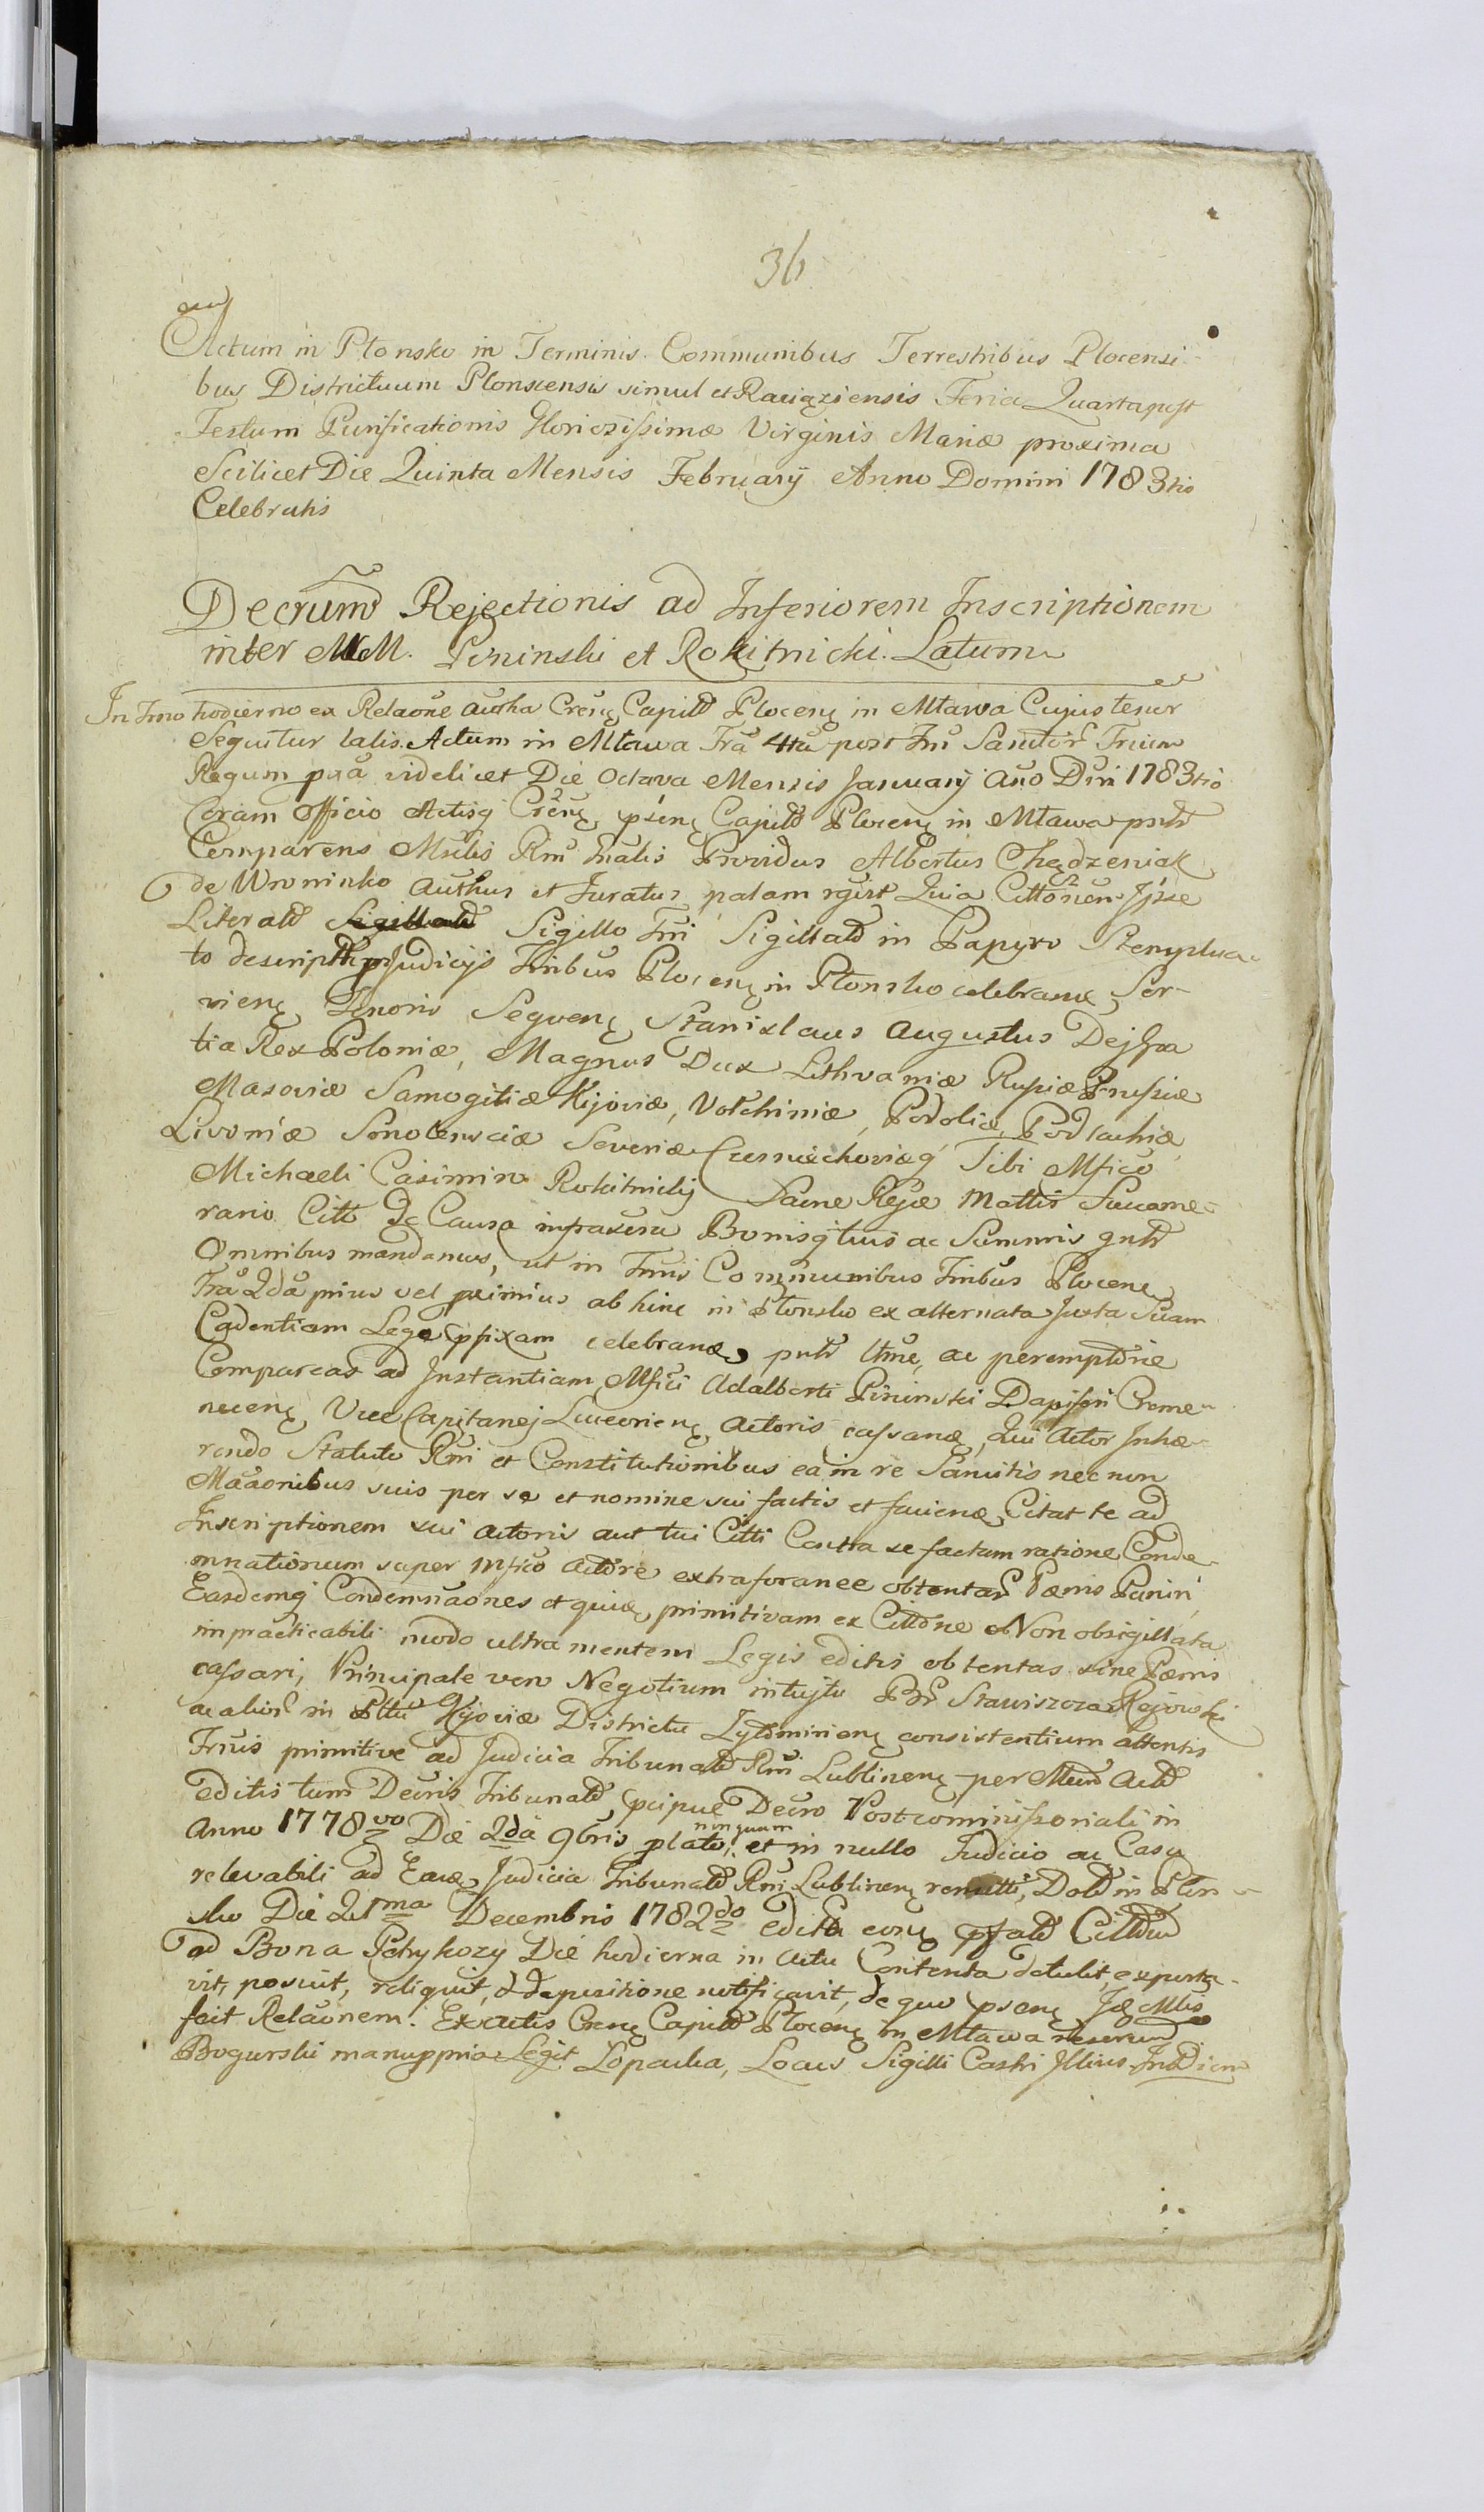 36
Actum in Płonsko in Terminis Communibus Terrestribus Plocensi-
bus Districtuum Plonscensis simul et Raciąziensis Feria Quarta post
Festum Purificationis Gloriozissimæ Virginis Mariæ proxima
Scilicet Die Quinta Mensis February Anno Domini 1783tio
Celebratis
Decrum Rejectionis ad Inferiorem Inscriptionem
inter MM. Pininski et Rokitnicki Latum
In Tmo hodierno ex Relaone autha Crens Capitt Plocens in Mława Cujus tenor
Sequitur talis. Actum in Mława Fra 4ta post Fm Sanctor Trium
Regum pxa videlicet Die Octava Mensis January Ano Dni 1783tio
Coram Officio Actisq Crens psens Capitt Plocens in Mława pntr
Comparens Mrlis Rni Gnalis Providus Albertus Chędzeniak
de Wroninko Authus et Juratus palam rgvit Quia Cittonem Ipse
Literald Sigillatd Sigillo Tri Sigillatd in Papyro Stemplua-
to descriptt pr Judicijs Tribus Plocens in Płonsko celebrans Ser-
viens Tenoris Sequens Stanislaus Augustus Dej Gra-
tia Rex Poloniæ, Magnus Dux Lithvaniæ Russiæ Prussiæ
Masoviæ Samogitiæ Kijoviæ, Volchiniæ, Podoliæ Podlachiæ
Livoniæ Smolensciæ Severiæ Czerniechoviæq Tibi Mfico
Michaeli Casimiro Rokitnicky Sacræ Regiæ Mattis Succame-
rario Citt de Causa infraxera Bonisq tuis ac Summis gntr
Omnibus mandamus, ut in Tmis Communibus Tribus Plocens
Fra 2da prius vel primius ab hinc in Płonsko ex alternata Juxta Suam
Cadentiam Lege pfixam celebrans pntr ltme ac peremptorie
Compareas ad Instantiam Mfici Adalberti Pininski Dapiferi Creme-
necens Vice Capitanej Luceoriens Actoris cassans, Qui Actor Inhæ-
rendo Statuto Rni et Constitutionibus ea in re Sancitis nec non
Maaonibus suis per se et nomine sui factis et faciens Citat te ad
Inscriptionem sui Actoris aut tui Citti Contra se factam ratione Conde-
mnationum super Mfico Actore extraforanee obtentar Pænis Puniri
Easdemq Condemnaones et quidæ primitivam ex Cittone Non obsigillata
impracticabili modo ultra mentem Legis editis obtentas sine Pænis
cassari, Principale vero Negotium intujtu Bnr Stawiszcza Rejowski
ac alior in Pltu Kijoviæ Districtu Zytomiriens consistentium attentis
Trius primitive ad Judicia Tribunald Rni Lublinens per Mum Actd
editis tum Decris Tribunald pcipue Decro Postcomissoriali in
Anno 1778vo Die 2da 9bris plato, nunquam et in nullo Judicio ac Casu
relevabili ad Eaq Judicia Tribunald Rni Lublinens remitti, Datd in Płon-
sko Die 21ma Decembris 1782do Edita eong pfatd Cittone
ad Bona Petrykozy Die hodierna in Actu Contenta detulit, exporta-
vit, posuit, reliquit, et depositione notificavit, de quo psens Iq Mlis
fecit Relaonem. Ex actis Crens Capitt Plocens in Mława reserund
Bogurski manuppria Legit Łopacka, Locus Sigilli Castri Illius In Diem